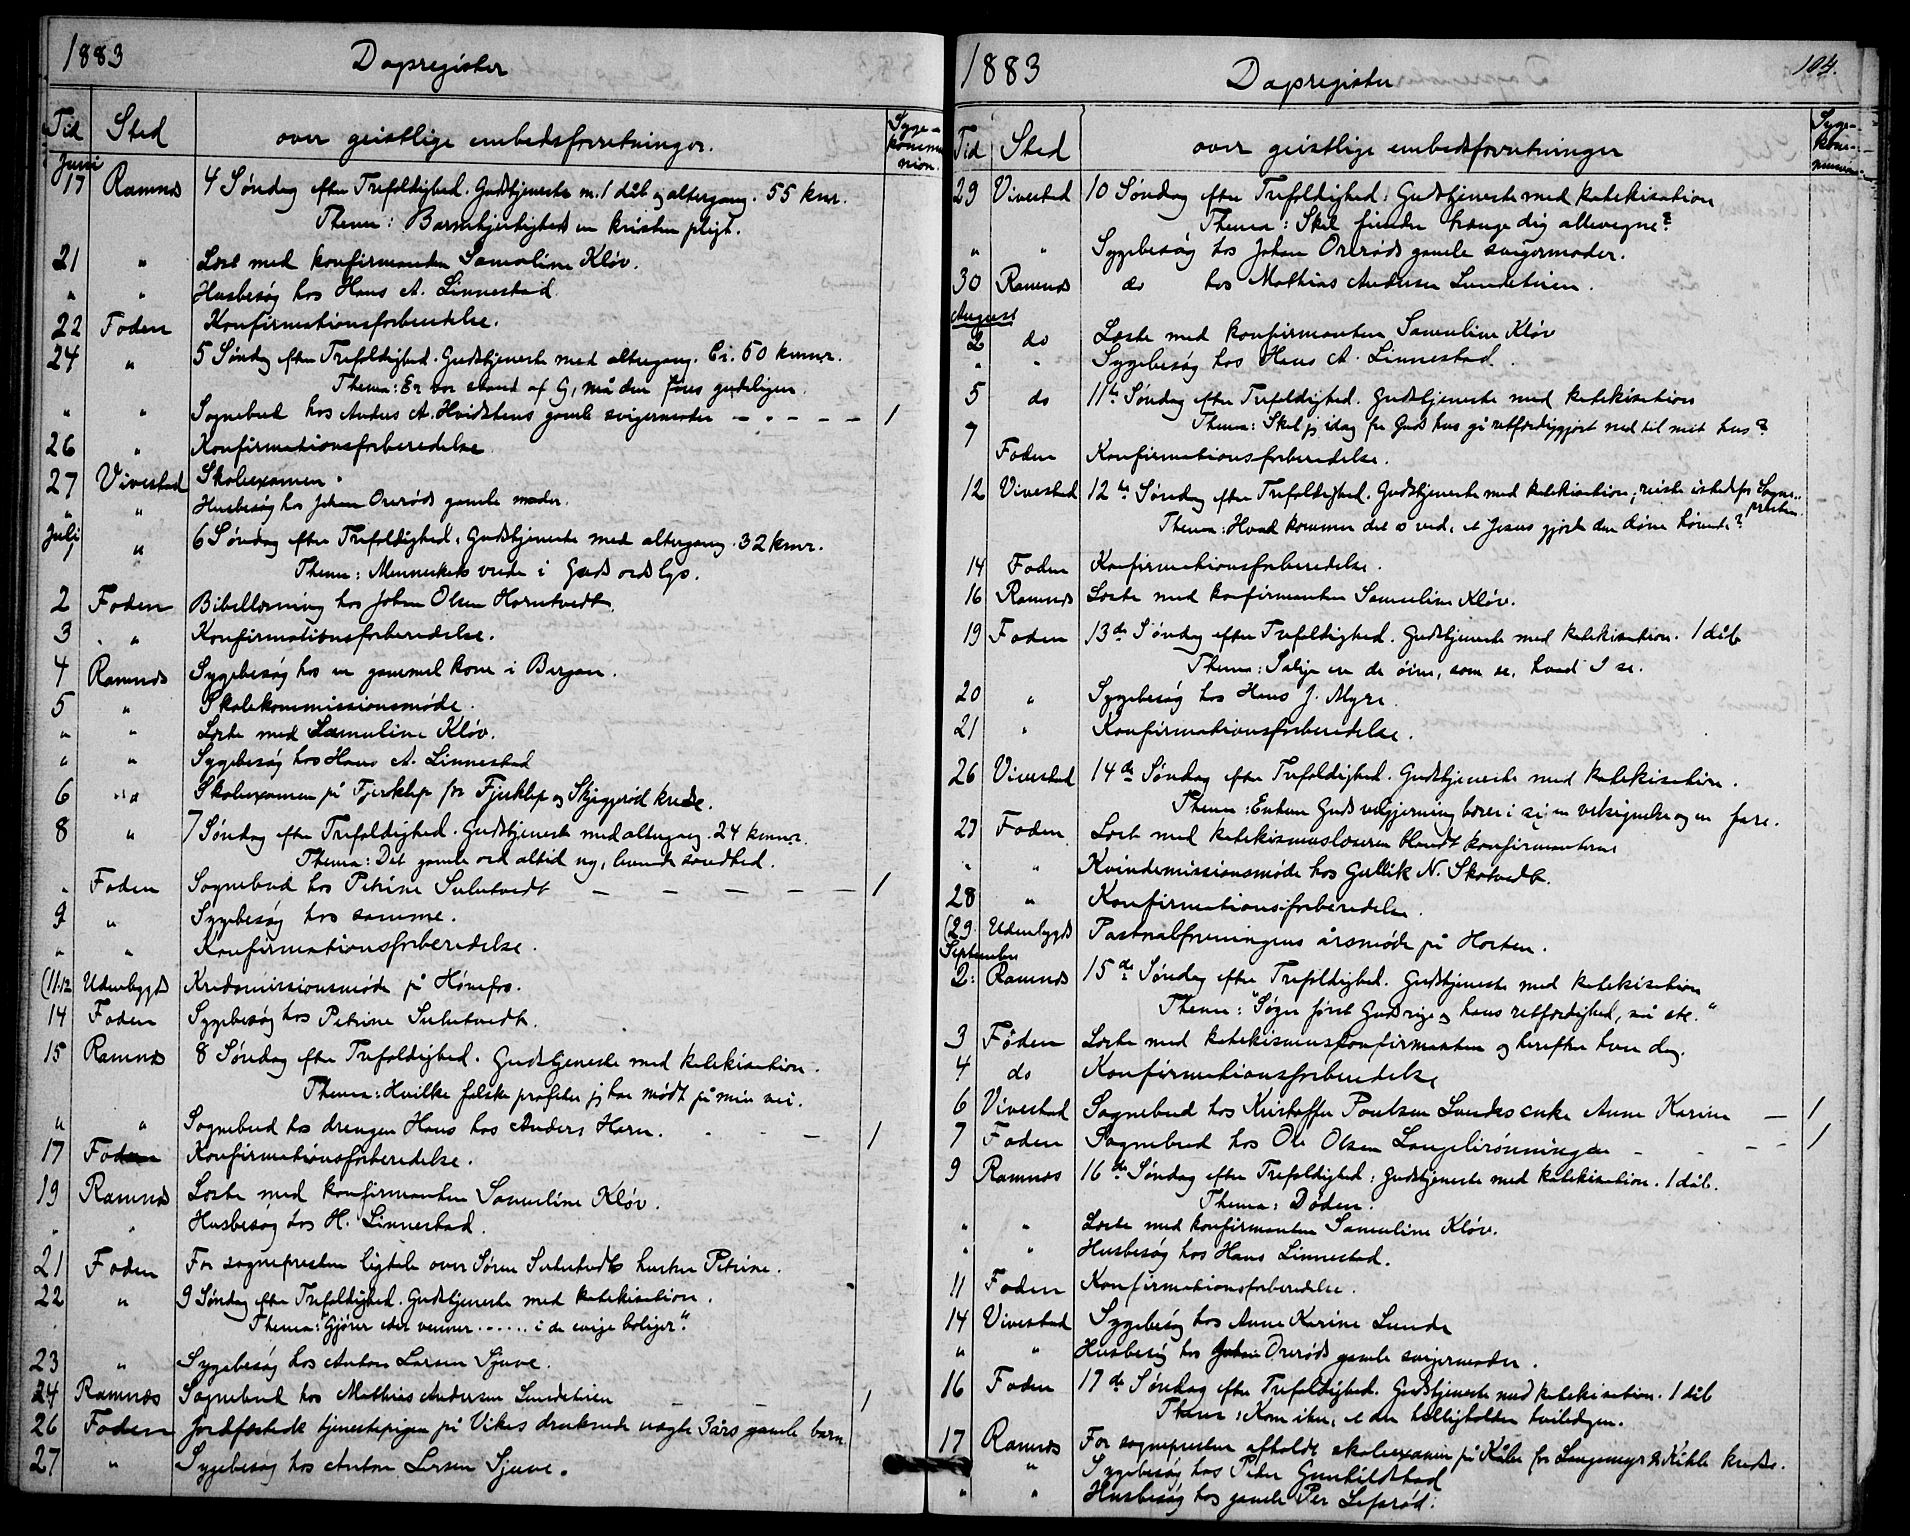 1883 Dagsregister
Tid Sted over geistlige embedsforretninger. Sygekommunion.
Juni
17 Ramnæs 4 Søndag efter Trefoldighed. Gudstjeneste m. 1 dåb og altergang. 55 kmr.
Thema: Barmhjertighed en kristen pligt.
21 " Læst med konfirmanden Samuline Kløv.
" " Husbesøg hos Hans A. Linnestad.
22 Foden Konfirmationsforberedelse.
24 " 5 Søndag efter Trefoldighed. Gudstjeneste med altergang. Ci. 60 kmmr.
Thema: Er vor stand af G, må den føres gudeligen.
" " Sognebud hos Anders A. Hvidstens gamle svigermoder — " — — — 1
26 " Konfirmationsforberedelse
27 Vivestad Skoleexamen.
" " Husbesøg hos Johan Orerøds gamle moder.
Juli
1 " 6 Søndag efter Trefoldighed. Gudstjeneste med altergang. 32 kmr.
Thema: Menneskets vrede i Guds ords lys.
2 Foden Bibellæsning hos Johan Olsen Horntvedt.
3 " Konfirmationsforberedelse.
4 Ramnæs Sygebesøg hos en gammel kone i Bergan.
5 " Skolekommissionsmøde.
" " Læste med Samuline Kløv.
" " Sygebesøg hos Hans A. Linnestad
6 " Skoleexamen på Fjerklep for Fjerklep og Skjeggerød kredse.
8 " 7 Søndag efter Trefoldighed. Gudstjeneste med altergang. 24 kmmr.
Thema: Det gamle ord altid ny, levende sandhed.
" Foden Sognebud hos Petrine Sulutvedt — — — — — 1
9 " Sygebesøg hos samme.
" " Konfirmationsforberedelse.
(11-12 Udenbygds Kredsmissionsmøde på Hønefos.
14 Foden Sygebesøg hos Petrine Sulutvedt.
15 Ramnæs 8 Søndag efter Trefoldighed. Gudstjeneste med katekisation.
Thema: Hvilke falske profeter jeg har mødt på min vei.
" " Sognebud hos drengen Hans hos Anders Horn. — 1
17 Foden Konfirmationsforberedelse.
19 Ramnæs Læste med konfirmanten Samuline Kløv.
" " Husbesøg hos H. Linnestad.
21 Foden For sognepresten ligtale over Søren Sulutvedts hustru Petrine.
22 " 9 Søndag efter Trefoldighed. Gudstjeneste med katekisation.
Thema: "Gjører eder venner...... i de evige boliger."
23 " Sygebesøg hos Anton Larsen Sjuve.
24 Ramnæs Sognebud hos Mathias Andersen Lundeteien — — 1
26 Foden Jordfæstede tjenestepigen på Vikes druknede uægte 3 års gamle barn.
27 " Sygebesøg hos Anton Larsen Sjuve.
1883 Dagsregister 104.
Tid Sted over geistlige embedsforretninger Sygekommunion
29 Vivestad 10 Søndag efter Trefoldighed: Gudstjeneste med katekisation
Thema: Skal fiender trænge dig allevegne?
" " Sygebesøg hos Johan Orerøds gamle svigermoder.
30 Ramnæs do hos Mathias Andersen Lundeteien.
August
2 do Læste med konfirmanten Samuline Kløv
" " Sygebesøg hos Hans A. Linnestad.
5 do 11te Søndag efter Trefoldighed. Gudstjeneste med katekisation
Thema: Skal jeg idag fra Guds hus gå retfærdiggjort ned til mit hus?
7 Foden Konfirmationsforberedelse.
12 Vivestad 12te Søndag efter Trefoldighed. Gudstjeneste med katekisation; reiste istedetfor Sognepresten.
Thema: Hvad kommer det os ved, at Jesus gjorde den døve hørende?
14 Foden Konfirmationsforberedelse.
16 Ramnæs Læste med konfirmanten Samuline Kløv.
19 Foden 13de Søndag efter Trefoldighed. Gudstjeneste med katekisation. 1 dåb
Thema: Salige er de øine, som se, hvad I se.
20 " Sygebesøg hos Hans J. Myre
21 " Konfirmationsforberedelse.
26 Vivestad 14de Søndag efter Trefoldighed. Gudstjeneste med katekisation.
Thema: Enhver Guds velgjerning bærer i sig en velsignelse og en fare.
27 Foden Læst med katekismuslæseren blandt konfirmanterne
" " Kvindemissionsmøde hos Gullik N. Skotvedt.
28 " Konfirmationsforberedelse.
(29 Udenbygds Pastoralforeningens årsmøde på Horten.
September
2 Ramnæs 15de Søndag efter Trefoldighed. Gudstjeneste med katekisation
Thema: "Søger først Guds rige og hans retfærdighed, så etc."
3 Foden Læste med katekismuskonfirmanten og herefter hver dag.
4 do Konfirmationsforberedelse
6 Vivestad Sognebud hos Kristoffer Poulsen Lundes enke Anne Karine — 1
7 Foden Sognebud hos Ole Olsen Langelirønningen — 1
9 Ramnæs 16de Søndag efter Trefoldighed: Gudstjeneste med katekisation. 1 dåb.
Thema: Døden.
" " Læste med konfirmanten Samuline Kløv.
" " Husbesøg hos Hans Linnestad.
11 Foden Konfirmationsforberedelse.
14 Vivestad Sygebesøg hos Anne Karine Lunde
" " Husbesøg hos Johan Orerøds gamle svigermoder.
16 Foden 17de Søndag efter Trefoldighed. Gudstjeneste med katekisation. 1 dåb
Thema: Kom ihu, at du helligholder hviledagen.
17 Ramnæs For sognepresten afholdt skoleexamen på Kåle for Langemyr & Kihle kreds.
" Sygebesøg hos Peder Gunhildstad
" " Husbesøg hos gamle Per Lefsrød.